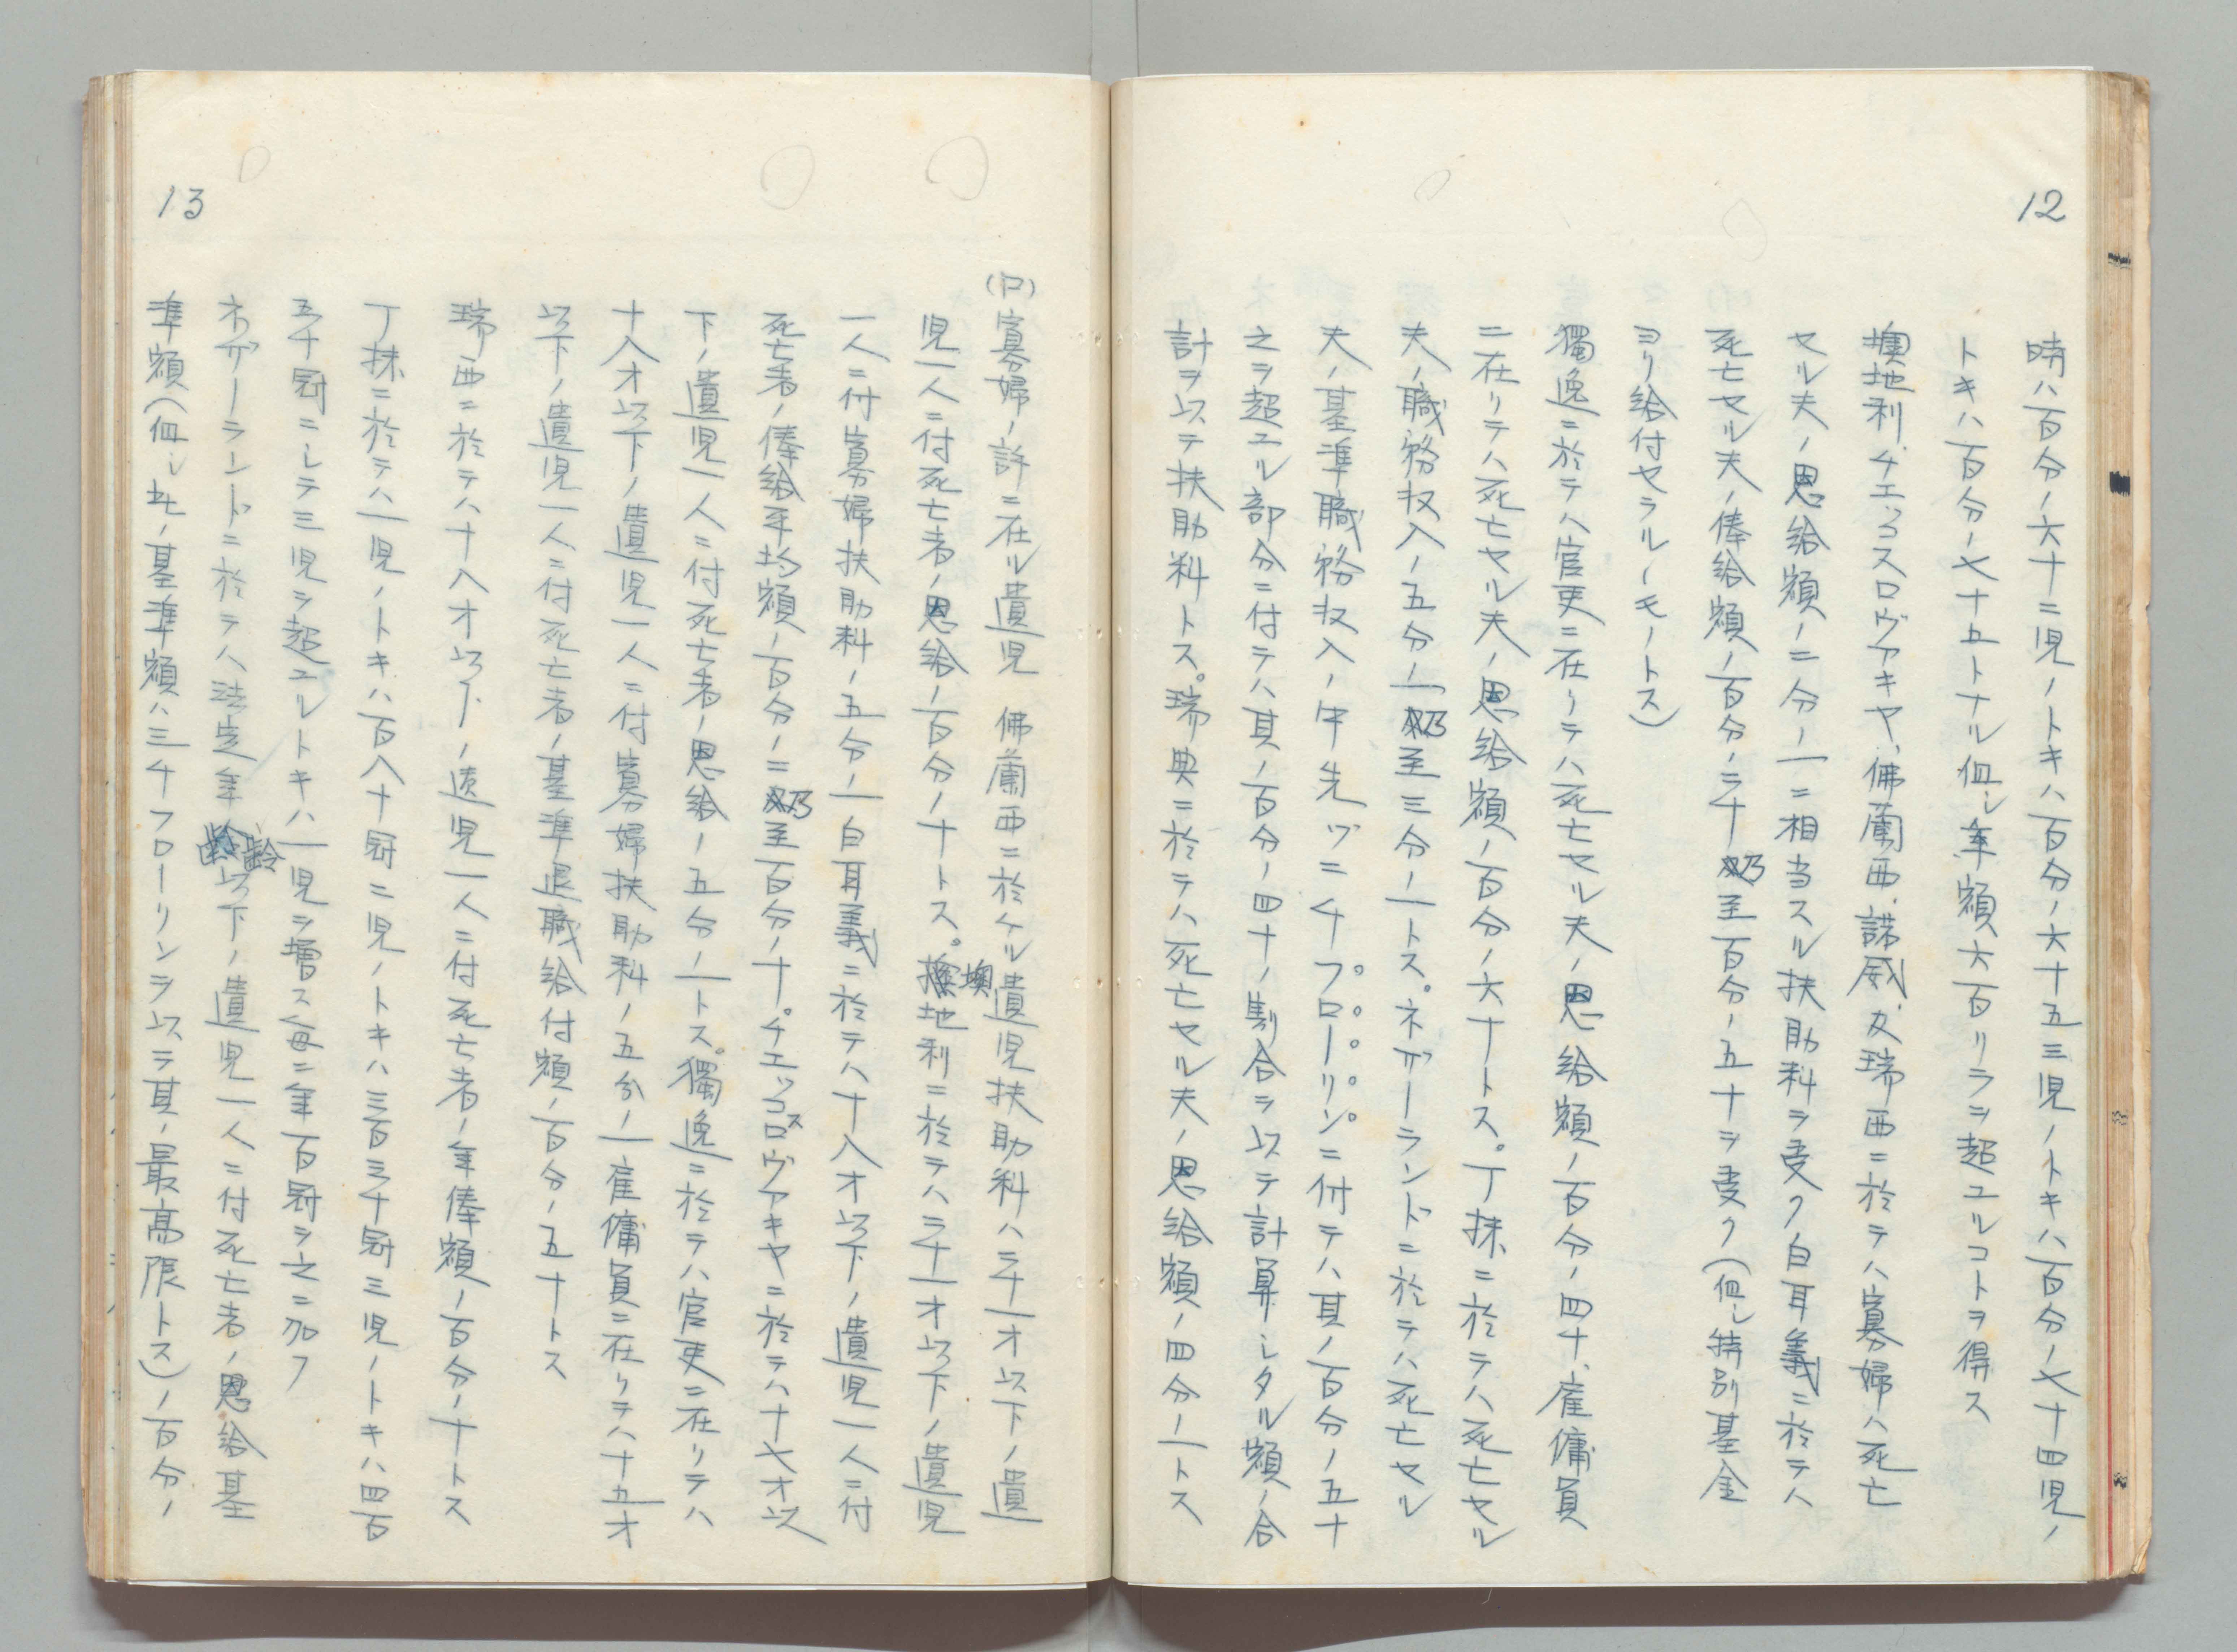 12
時ハ百分ノ六十二児ノトキハ百分ノ六十五三児ノトキハ百分ノ七十四児ノ
トキハ百分ノ七十五トナル但シ年額六百リラヲ超ユルコトヲ得ス
墺地利、チェッコスロヴァキヤ、佛蘭西、諾威、及瑞西ニ於テハ寡婦ハ死亡
セル夫ノ恩給額ノ二分ノ一ニ相当スル扶助料ヲ受ク白耳義ニ於テハ
死亡セル夫ノ俸給額ノ百分ノ二十乃至百分ノ五十ヲ受ク(但シ特別基金
ヨリ給付セラルヽモノトス)
獨逸ニ於テハ官吏ニ在リテハ死亡セル夫ノ恩給額ノ百分ノ四十、雇傭員
ニ在リテハ死亡セル夫ノ恩給額ノ百分ノ六十トス。丁抹ニ於テハ死亡セル
夫ノ職務収入ノ五分ノ一乃至三分ノ一トス。ネザーランドニ於テハ死亡セル
夫ノ基準職務収入ノ中先ヅ二千フローリンニ付テハ其ノ百分ノ五十
之ヲ超ユル部分ニ付テハ其ノ百分ノ四十ノ割合ヲ以テ計算シタル額ノ合
計ヲ以テ扶助料トス。瑞典ニ於テハ死亡セル夫ノ恩給額ノ四分ノ一トス
13
(ロ)寡婦ノ許ニ在ル遺児 佛蘭西ニ於ケル遺児扶助料ハ二十一才以下ノ遺
児一人ニ付死亡者ノ恩給ノ百分ノ十トス。墺地利ニ於テハ二十一才以下ノ遺児
一人ニ付寡婦扶助料ノ五分ノ一白耳義ニ於テハ十八才以下ノ遺児一人ニ付
死亡者ノ俸給平均額ノ百分ノ二乃至百分ノ十。チェッコスロヴァキヤニ於テハ十七才以
下ノ遺児一人ニ付死亡者ノ恩給ノ五分ノ一トス。獨逸ニ於テハ官吏ニ在リテハ
十八才以下ノ遺児一人ニ付寡婦扶助料ノ五分ノ一雇傭員ニ在リテハ十五才
以下ノ遺児一人ニ付死亡者ノ基準退職給付額ノ百分ノ五十トス
瑞西ニ於テハ十八才以下ノ遺児一人ニ付死亡者ノ年俸額ノ百分ノ十トス
丁抹ニ於テハ一児ノトキハ百八十冠二児ノトキハ三百三十冠三児ノトキハ四百
五十冠ニシテ三児ヲ超ユルトキハ一児ヲ増ス毎ニ年百冠ヲ之ニ加フ
ネザーランドニ於テハ法定年齢以下ノ遺児一人ニ付死亡者ノ恩給基
準額(但シ此ノ基準額ハ三千フローリンヲ以テ其ノ最高限トス)ノ百分ノ